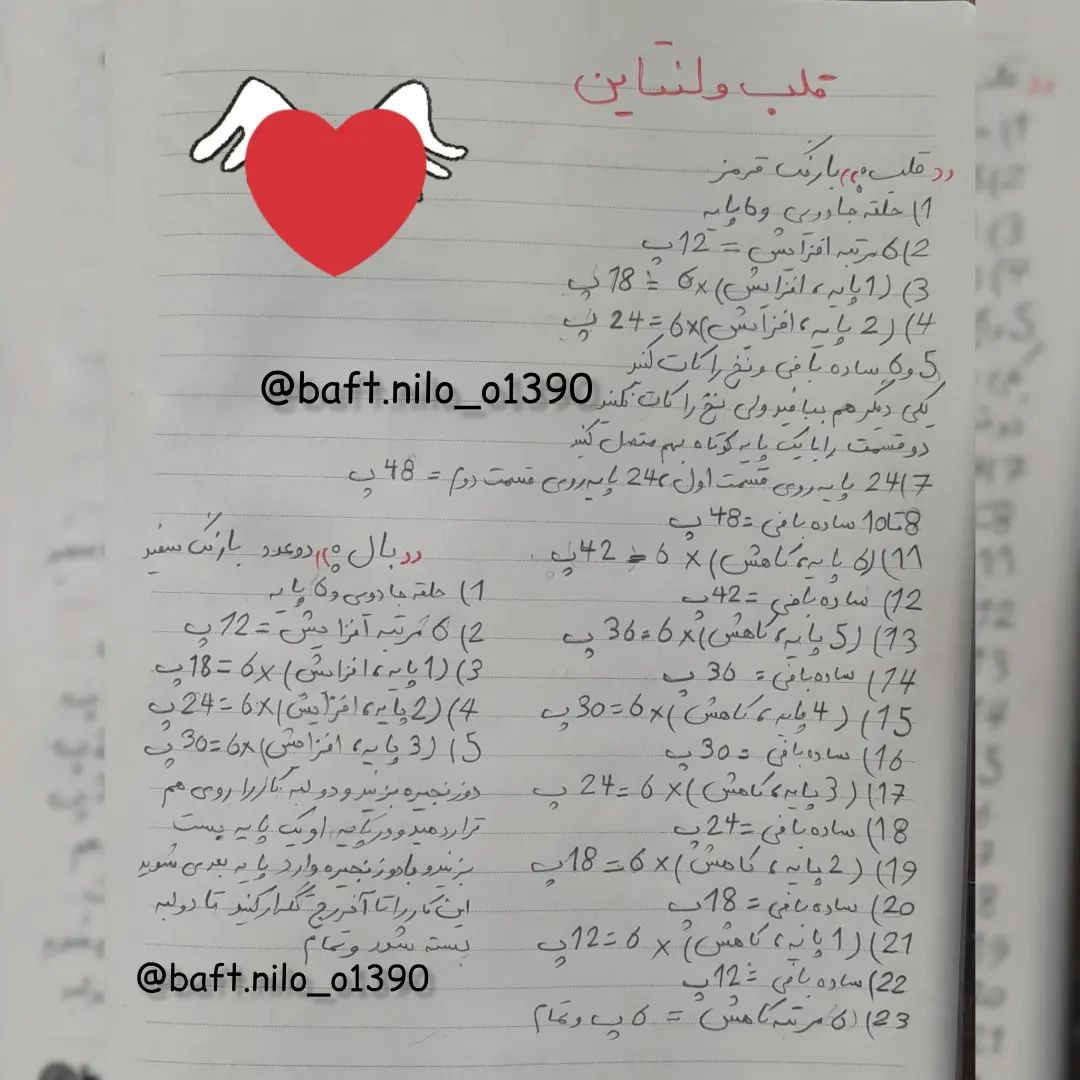 قلب ولنتاین
«قلب» بارنگ قرمز
1) حلقه جادویی و 6 پایه
2) 6 مرتبه افزایش = 12 پ
3) (1 پایه، افزایش) ×6 = 18 پ
4) (2 پایه، افزایش) ×6 = 24 پ
5 و 6) ساده بافی و نخ را کات کنید
یکی دیگر هم ببافید ولی نخ را کات نکنید
دو قسمت را با یک پایه کوتاه بهم متصل کنید
7) 24 پایه روی قسمت اول، 24 پایه روی قسمت دوم = 48 پ
8 تا 10 ساده بافی = 48 پ
11) (6 پایه، کاهش) × 6 = 42 پ
12) ساده بافی = 42 پ
13) (5 پایه، کاهش) ×6 = 36 پ
14) ساده بافی = 36 پ
15) (4 پایه، کاهش) ×6 = 30 پ
16) ساده بافی = 30 پ
17) (3 پایه، کاهش) × 6 = 24 پ
18) ساده بافی = 24 پ
19) (2 پایه، کاهش) ×6 = 18 پ
20) ساده بافی = 18 پ
21) (1 پایه، کاهش) × 6 = 12 پ
22) ساده بافی = 12 پ
23) 6 مرتبه کاهش = 6 پ و تمام
«بال» دو عدد بارنگ سفید
1) حلقه جادویی و 6 پایه
2) 6 مرتبه افزایش = 12 پ
3) (1 پایه، افزایش) ×6 = 18 پ
4) (2 پایه، افزایش) ×6 = 24 پ
5) (3 پایه، افزایش) ×6 = 30 پ
دو زنجیره بزنید و دو لبه کار را روی هم
قرار دهید و در پایه اول یک پایه بست
بزنید و با دو زنجیره وارد پایه بعدی شوید
این کار را تا آخر رج تکرار کنید تا دو لبه
بسته شود و تمام
@baft.nilo_o1390
@baft.nilo_o1390